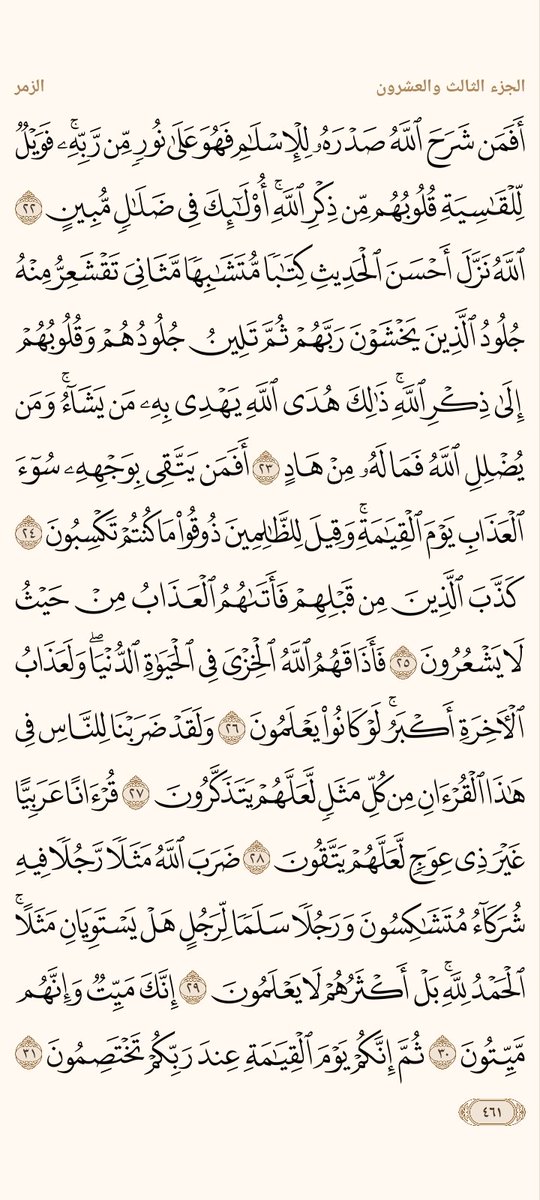 الجزء الثالث والعشرون الزمر
أَفَمَن شَرَحَ ٱللَّهُ صَدْرَهُۥ لِلْإِسْلَٰمِ فَهُوَ عَلَىٰ نُورٍ مِّن رَّبِّهِۦۚ فَوَيْلٌ
لِّلْقَٰسِيَةِ قُلُوبُهُم مِّن ذِكْرِ ٱللَّهِۚ أُو۟لَٰٓئِكَ فِى ضَلَٰلٍ مُّبِينٍ ٢٢
ٱللَّهُ نَزَّلَ أَحْسَنَ ٱلْحَدِيثِ كِتَٰبًا مُّتَشَٰبِهًا مَّثَانِىَ تَقْشَعِرُّ مِنْهُ
جُلُودُ ٱلَّذِينَ يَخْشَوْنَ رَبَّهُمْ ثُمَّ تَلِينُ جُلُودُهُمْ وَقُلُوبُهُمْ
إِلَىٰ ذِكْرِ ٱللَّهِۚ ذَٰلِكَ هُدَى ٱللَّهِ يَهْدِى بِهِۦ مَن يَشَآءُۚ وَمَن
يُضْلِلِ ٱللَّهُ فَمَا لَهُۥ مِنْ هَادٍ ٢٣ أَفَمَن يَتَّقِى بِوَجْهِهِۦ سُوٓءَ
ٱلْعَذَابِ يَوْمَ ٱلْقِيَٰمَةِۚ وَقِيلَ لِلظَّٰلِمِينَ ذُوقُوا۟ مَا كُنتُمْ تَكْسِبُونَ ٢٤
كَذَّبَ ٱلَّذِينَ مِن قَبْلِهِمْ فَأَتَىٰهُمُ ٱلْعَذَابُ مِنْ حَيْثُ
لَا يَشْعُرُونَ ٢٥ فَأَذَاقَهُمُ ٱللَّهُ ٱلْخِزْىَ فِى ٱلْحَيَوٰةِ ٱلدُّنْيَاۖ وَلَعَذَابُ
ٱلْءَاخِرَةِ أَكْبَرُۚ لَوْ كَانُوا۟ يَعْلَمُونَ ٢٦ وَلَقَدْ ضَرَبْنَا لِلنَّاسِ فِى
هَٰذَا ٱلْقُرْءَانِ مِن كُلِّ مَثَلٍ لَّعَلَّهُمْ يَتَذَكَّرُونَ ٢٧ قُرْءَانًا عَرَبِيًّا
غَيْرَ ذِى عِوَجٍ لَّعَلَّهُمْ يَتَّقُونَ ٢٨ ضَرَبَ ٱللَّهُ مَثَلًا رَّجُلًا فِيهِ
شُرَكَآءُ مُتَشَٰكِسُونَ وَرَجُلًا سَلَمًا لِّرَجُلٍ هَلْ يَسْتَوِيَانِ مَثَلًاۚ
ٱلْحَمْدُ لِلَّهِۚ بَلْ أَكْثَرُهُمْ لَا يَعْلَمُونَ ٢٩ إِنَّكَ مَيِّتٌ وَإِنَّهُم
مَّيِّتُونَ ٣٠ ثُمَّ إِنَّكُمْ يَوْمَ ٱلْقِيَٰمَةِ عِندَ رَبِّكُمْ تَخْتَصِمُونَ ٣١
٤٦١